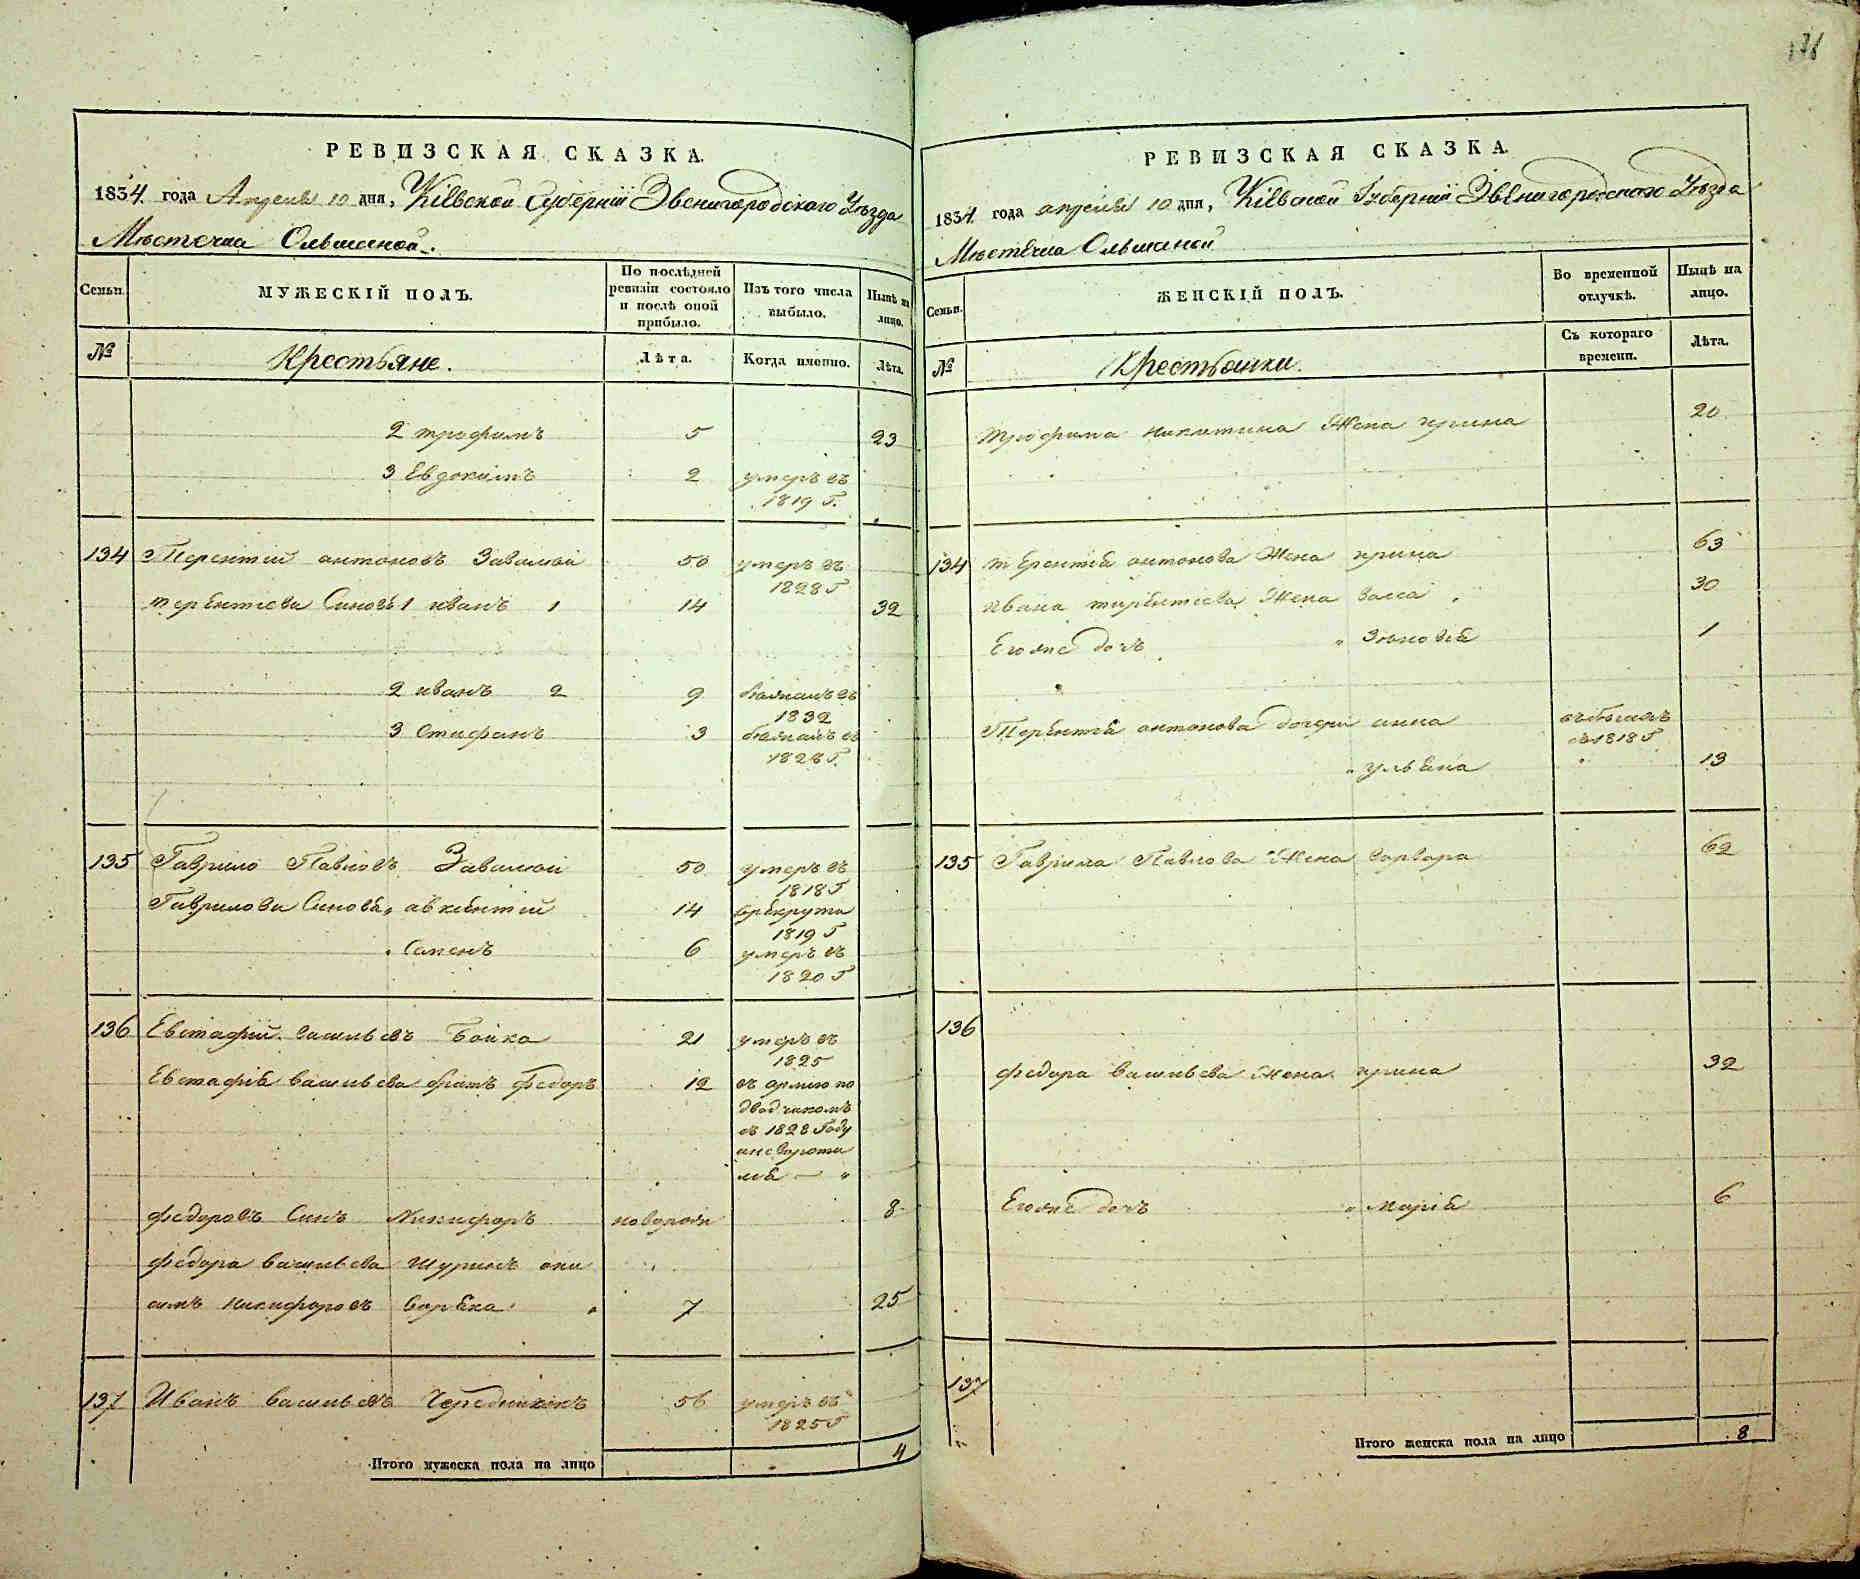 136
РЕВИЗСКАЯ СКАЗКА.
1834 года Апреля 10 дня, Кіевской Губерніи Звенигородского Уѣзда
Мѣстечка Ольшаной.
Семьи.
МУЖЕСКІЙ ПОЛЪ.
По послѣдней ревизіи состояло и послѣ оной прибыло.
Изъ того числа выбыло.
Нынѣ на лицо.
№
Крестьяне.
Лѣта.
Когда именно.
Лѣта.
2 трофимъ 5 23
3 Евдокимъ 2 умеръ въ
1819 Г.
134 Терентій антоновъ Завалїй 50 умеръ въ
1828 Г
терентіева Синовѣ 1 иванъ 1 14 32
2 иванъ 2 9
1832
3 Стифанъ 3
1828 Г.
135 Гаврило Павловъ Завалїй 50 умеръ въ
1818 Г
Гаврилови Синовѣ авксентій 14 врекрута
1819 Г
Семенъ 6 умеръ въ
1820 Г
136 Евстафій васильевъ Бойко 21 умеръ въ
1825
Евстафія васильева братъ федоръ 12 въ армію по
двадчикомъ
въ 1828 Году
федоровъ Синъ Никифоръ новорожд 8
федора васильева Шуринъ они
симъ никифоровъ 7 25
137 Иванъ васильевъ Чередникъ 56 умеръ въ
1825 Г
Итого мужеска пола на лицо 4
РЕВИЗСКАЯ СКАЗКА.
1834 года апреля 10 дня, Кіевской Губерніи Звенигородского Уѣзда
Мѣстечка Ольшаной
Семьи.
ЖЕНСКІЙ ПОЛЪ.
Во временной отлучкѣ.
Нынѣ на лицо.
№
Крестьянки.
Съ котораго времени.
Лѣта.
трофима никитина Жена ирина 20
134 терентія антонова Жена ирина 63
ивана тирентіева Жена васса 30
Егожѣ дочъ Зѣновія 1
Терентія антонова дочери анна
въ 1818 Г
ульяна 13
135 Гаврила Павлова Жена варвара 62
136
федора васильева Жена ирина 32
Егожѣ дочъ марія 6
137
Итого женска пола на лицо 8